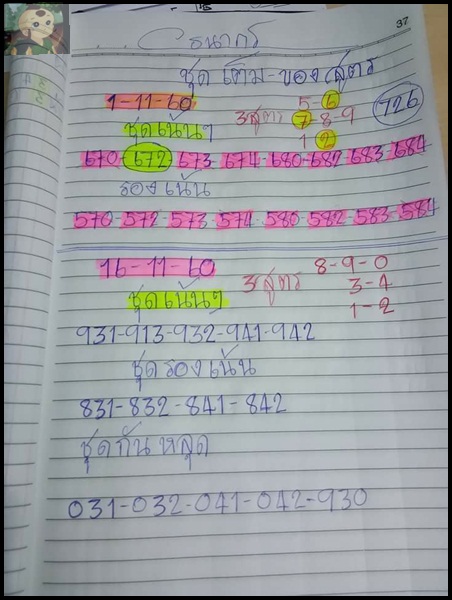 37
ธนากร
ชุด เต็ม-ของ สูตร
1-11-60
5-6
ชุดเน้นๆ
3สูตร 7-8-9
726
1 2
670-672 673 674-680-682 683 684
รองเน้น
570-572-573-574 580-582-583-584
16-11-60
8-9-0
3สูตร
3-4
ชุดเน้นๆ
1-2
931-913-932-941-942
ชุดรองเน้น
831-832-841-842
ชุดกันหลุด
031-032-041-042-930